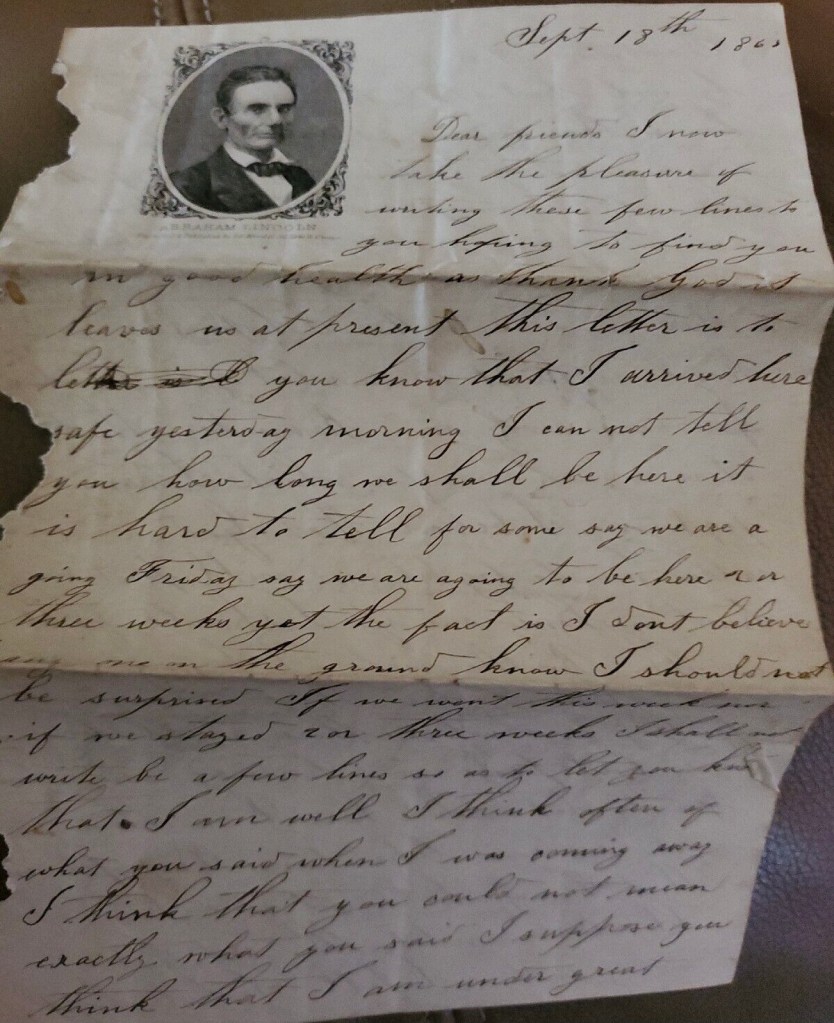 Sept. 18th 186
Dear friends I now
take the pleasure of
writing these few lines to
you hoping to find you
ABRAHAM LINCOLN
in good health as thank God it
leaves us at present this letter is to
let you know that I arrived here
safe yesterday morning I can not tell
you how long we shall be here it
is hard to tell for some say we are a
going Friday say we are agoing to be here 2 or
three weeks yet the fact is I dont believe
on the ground know I should not
be surprised If we went this week nor
if we stayed 2 or three weeks I shall not
write be a few lines so as to let you know
that I am well I think often of
what you said when I was coming away
I think that you could not mean
exactly what you said I suppose you
think that I am under great